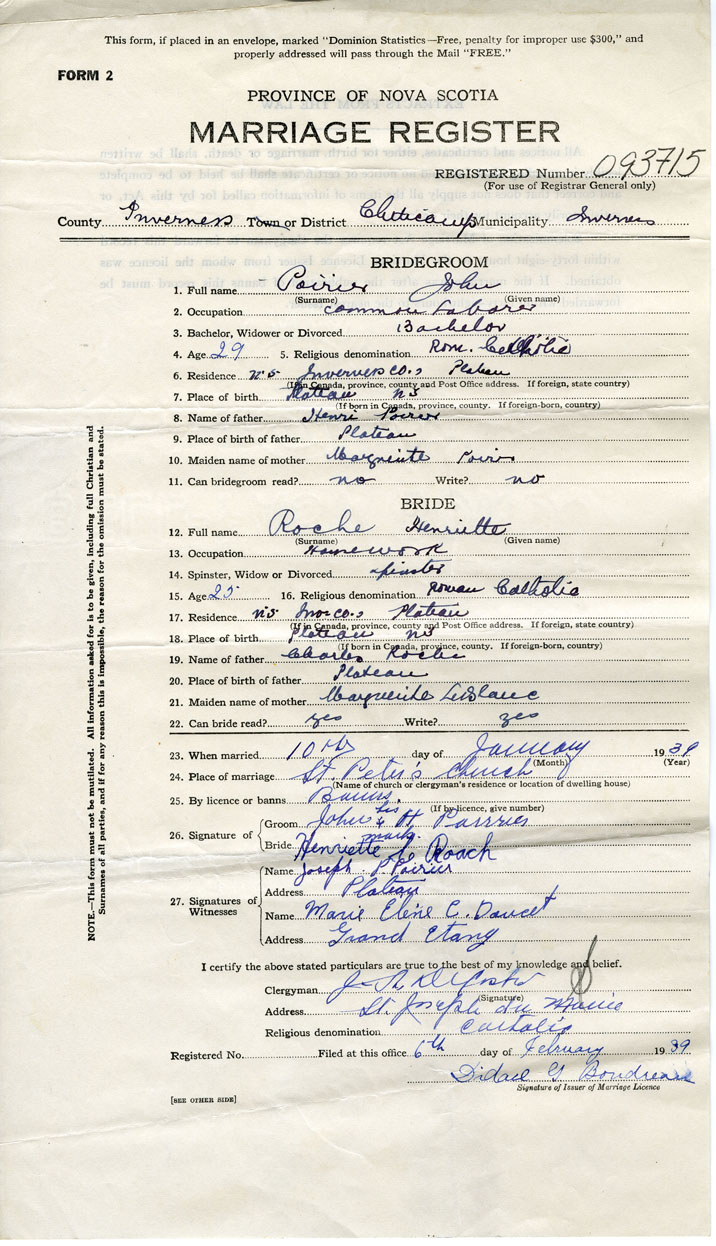 This form, if placed in an envelope, marked "Dominion Statistics—Free, penalty for improper use $300," and
properly addressed will pass through the Mail "FREE."
FORM 2
PROVINCE OF NOVA SCOTIA
MARRIAGE REGISTER
REGISTERED Number 093715
(For use of Registrar General only)
County Inverness Town or District Cheticamp Municipality Inverness
BRIDEGROOM
1. Full name Poirier John
(Surname) (Given name)
2. Occupation common Laborer
3. Bachelor, Widower or Divorced Bachelor
4. Age 29 5. Religious denomination Rom. Catholic
6. Residence N.S Inverness Co., Plateau
(If in Canada, province, county and Post Office address. If foreign, state country)
7. Place of birth Plateau NS
(If born in Canada, province, county. If foreign-born, country)
8. Name of father Henri Poirier
9. Place of birth of father Plateau
10. Maiden name of mother Marguerite
11. Can bridegroom read? no Write? no
BRIDE
12. Full name Roche Henriette
(Surname) (Given name)
13. Occupation Homework
14. Spinster, Widow or Divorced spinster
15. Age 25 16. Religious denomination Roman Catholic
17. Residence N.S Inv. Co., Plateau
(If in Canada, province, county and Post Office address. If foreign, state country)
18. Place of birth Plateau NS
(If born in Canada, province, county. If foreign-born, country)
19. Name of father Charles Roche
20. Place of birth of father Plateau
21. Maiden name of mother Marguerite LeBlanc
22. Can bride read? yes Write? yes
23. When married 10th day of January 1939
(Month) (Year)
24. Place of marriage St. Peter's Church
(Name of church or clergyman's residence or location of dwelling house)
25. By licence or banns Banns.
(If by licence, give number)
26. Signature of
Groom John his x mark H
Bride Henriette Roach
27. Signatures of Witnesses
Name Joseph P. Poirier
Address Plateau
Name Marie Eline C. Doucet
Address Grand Etang
I certify the above stated particulars are true to the best of my knowledge and belief.
Clergyman
(Signature)
Address St. Joseph du Moine
Religious denomination Catholic
Registered No. Filed at this office 6th day of February 1939
Didace G Boudreau
Signature of Issuer of Marriage Licence
[SEE OTHER SIDE]
NOTE.—This form must not be mutilated. All information asked for is to be given, including full Christian and
Surnames of all parties, and if for any reason this is impossible, the reason for the omission must be stated.